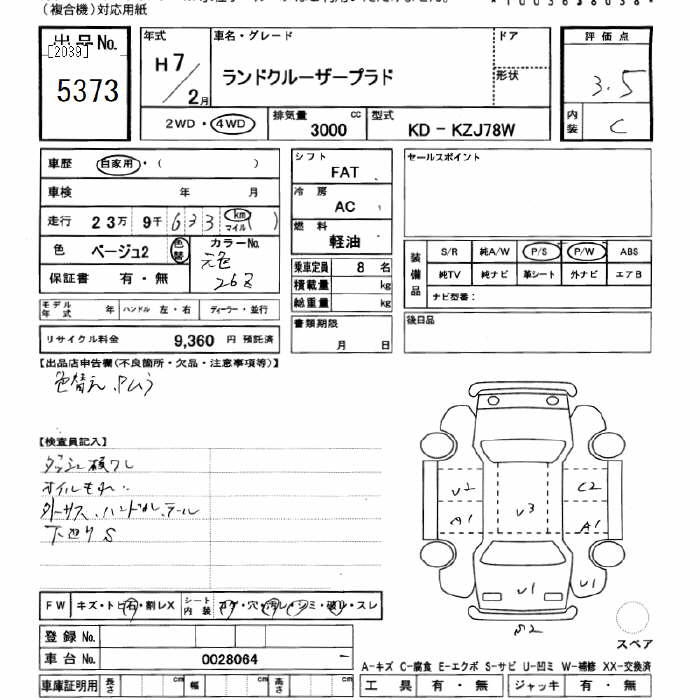 (複合機)対応用紙
出品No.
[2039]
5373
年式
H7/2月
車名・グレード
ランドクルーザープラド
ドア
形状
評価点
3.5
内装
C
2WD・4WD
排気量
3000 cc
型式
KD-KZJ78W
車歴 自家用・( )
車検 年 月
走行 23万 9千 633 km マイル ( )
色 ベージュ2 色替
カラーNo.
元色
保証書 有・無
シフト
FAT
冷房
AC
燃料
軽油
乗車定員 8 名
積載量 kg
総重量 kg
書類期限
月 日
セールスポイント
装備品
S/R 純A/W P/S P/W ABS
純TV 純ナビ 革シート 外ナビ エアB
ナビ型番:
後日品
モデル年式 年 ハンドル 左・右 ディーラー・並行
リサイクル料金 9,360 円 預託済
【出品店申告欄(不良箇所・欠品・注意事項等)】
色替え、
【検査員記入】
オイルもれ
下廻りS
U2
A1
U3
C2
A1
U1
U1
S2
スペア
FW キズ・トビ石・割レX
シート内装 コゲ・穴・汚レ・シミ・破レ・スレ
登録No.
車台No. 0028064 -
車庫証明用 長さ cm 幅 cm 高さ cm
A-キズ C-腐食 E-エクボ S-サビ U-凹ミ W-補修 XX-交換済
工具 有・無 ジャッキ 有・無